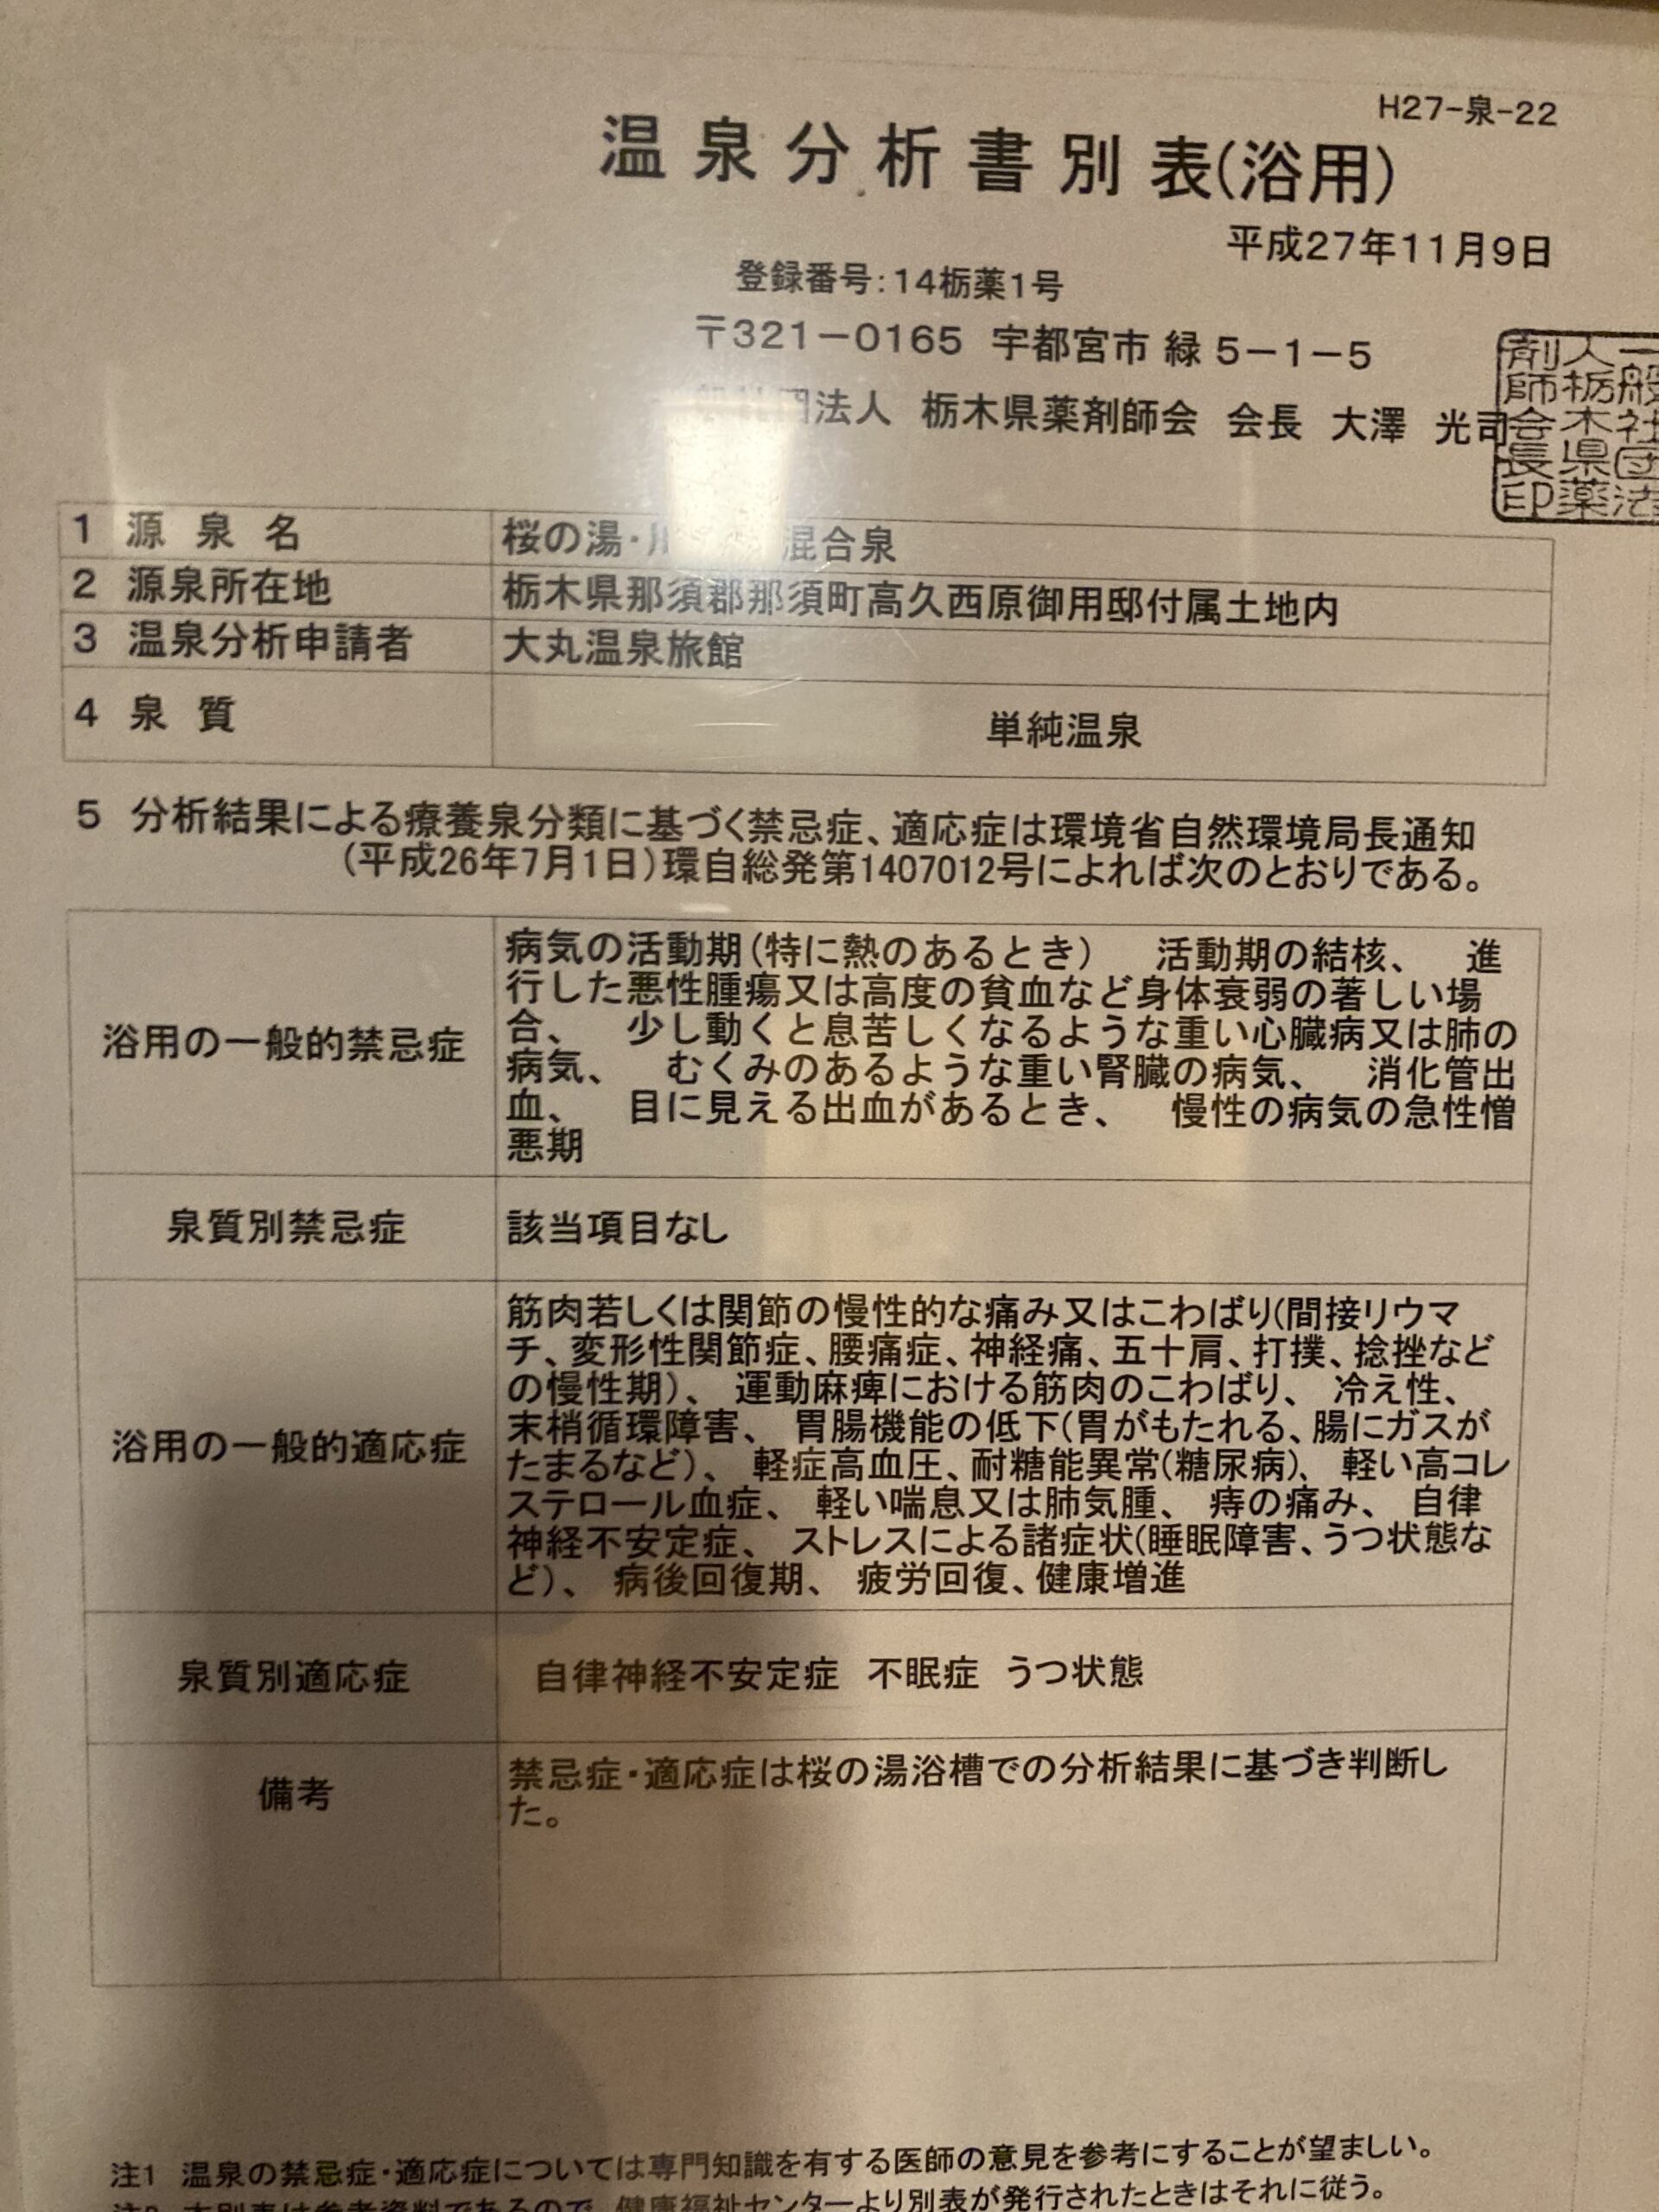 H27-泉-22
温泉分析書別表(浴用)
平成27年11月9日
登録番号:14栃薬1号
〒321-0165 宇都宮市 緑 5-1-5
法人 栃木県薬剤師会 会長 大澤 光司
一般社団法
人栃木県薬
剤師会長印
1 源泉名 桜の湯・ 混合泉
2 源泉所在地 栃木県那須郡那須町高久西原御用邸付属土地内
3 温泉分析申請者 大丸温泉旅館
4 泉質 単純温泉
5 分析結果による療養泉分類に基づく禁忌症、適応症は環境省自然環境局長通知
(平成26年7月1日)環自総発第1407012号によれば次のとおりである。
浴用の一般的禁忌症
病気の活動期(特に熱のあるとき) 活動期の結核、 進
行した悪性腫瘍又は高度の貧血など身体衰弱の著しい場
合、 少し動くと息苦しくなるような重い心臓病又は肺の
病気、 むくみのあるような重い腎臓の病気、 消化管出
血、 目に見える出血があるとき、 慢性の病気の急性憎
悪期
泉質別禁忌症 該当項目なし
浴用の一般的適応症
筋肉若しくは関節の慢性的な痛み又はこわばり(間接リウマ
チ、変形性関節症、腰痛症、神経痛、五十肩、打撲、捻挫など
の慢性期)、 運動麻痺における筋肉のこわばり、 冷え性、
末梢循環障害、 胃腸機能の低下(胃がもたれる、腸にガスが
たまるなど)、 軽症高血圧、耐糖能異常(糖尿病)、 軽い高コレ
ステロール血症、 軽い喘息又は肺気腫、 痔の痛み、 自律
神経不安定症、 ストレスによる諸症状(睡眠障害、うつ状態な
ど)、 病後回復期、 疲労回復、健康増進
泉質別適応症 自律神経不安定症 不眠症 うつ状態
備考
禁忌症・適応症は桜の湯浴槽での分析結果に基づき判断し
た。
注1 温泉の禁忌症・適応症については専門知識を有する医師の意見を参考にすることが望ましい。
注2 本別表は参考資料であるので、健康福祉センターより別表が発行されたときはそれに従う。